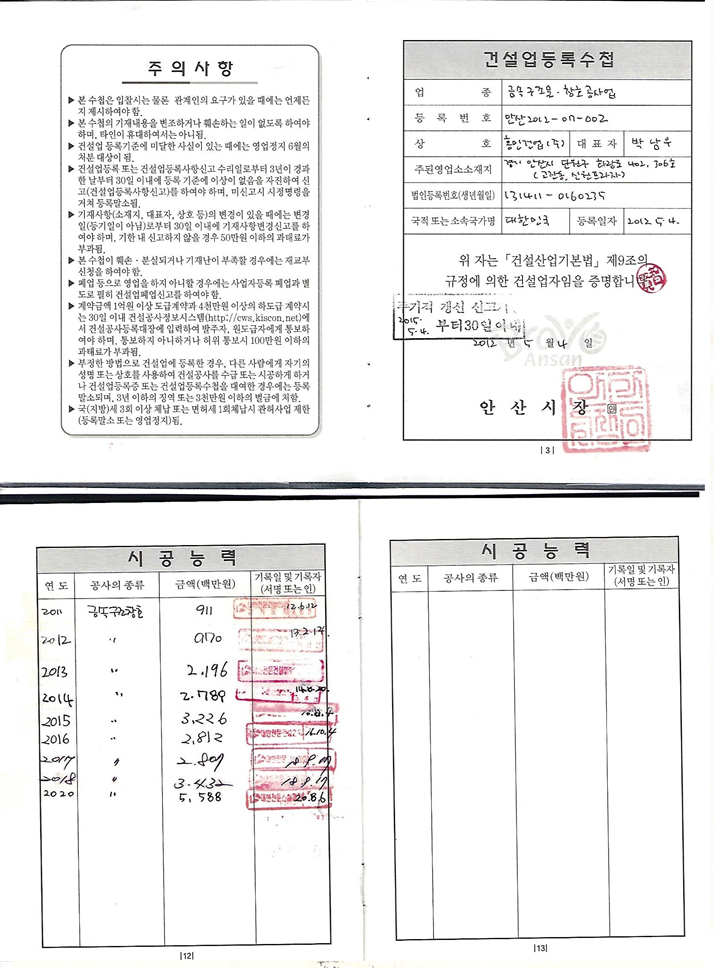 주 의 사 항
▶ 본 수첩은 입찰시는 물론 관계인의 요구가 있을 때에는 언제든
지 제시하여야 함.
▶ 본 수첩의 기재내용을 변조하거나 훼손하는 일이 없도록 하여야
하며, 타인이 휴대하여서는 아니됨.
▶ 건설업 등록기준에 미달한 사실이 있는 때에는 영업정지 6월의
처분 대상이 됨.
▶ 건설업등록 또는 건설업등록사항신고 수리일로부터 3년이 경과
한 날부터 30일 이내에 등록 기준에 이상이 없음을 자진하여 신
고(건설업등록사항신고)를 하여야 하며, 미신고시 시정명령을
거쳐 등록말소됨.
▶ 기재사항(소재지, 대표자, 상호 등)의 변경이 있을 때에는 변경
일(등기일이 아님)로부터 30일 이내에 기재사항변경신고를 하
여야 하며, 기한 내 신고하지 않을 경우 50만원 이하의 과태료가
부과됨.
▶ 본 수첩이 훼손·분실되거나 기재난이 부족할 경우에는 재교부
신청을 하여야 함.
▶ 폐업 등으로 영업을 하지 아니할 경우에는 사업자등록 폐업과 별
도로 필히 건설업폐업신고를 하여야 함.
▶ 계약금액 1억원 이상 도급계약과 4천만원 이상의 하도급 계약시
는 30일 이내 건설공사정보시스템(http://cws.kiscon.net)에
서 건설공사등록대장에 입력하여 발주자, 원도급자에게 통보하
여야 하며, 통보하지 아니하거나 허위 통보시 100만원 이하의
과태료가 부과됨.
▶ 부정한 방법으로 건설업에 등록한 경우, 다른 사람에게 자기의
성명 또는 상호를 사용하여 건설공사를 수급 또는 시공하게 하거
나 건설업등록증 또는 건설업등록수첩을 대여한 경우에는 등록
말소되며, 3년 이하의 징역 또는 3천만원 이하의 벌금에 처함.
▶ 국(지방)세 3회 이상 체납 또는 면허세 1회체납시 관허사업 제한
(등록말소 또는 영업정지)됨.
건설업등록수첩
업 종 금속구조물·창호공사업
등 록 번 호 안산2012-07-002
상 호 (주) 대 표 자 박남우
주된영업소소재지 경기 안산시 단원구 화랑로 402, 306호
법인등록번호(생년월일) 131411-0160235
국적 또는 소속국가명 대한민국 등록일자 2012.5.4.
위 자는 「건설산업기본법」 제9조의
규정에 의한 건설업자임을 증명합니
주기적 갱신 신고
2015.
5.4. 부터30일이내
2012 년 5 월 4 일
Ansan
안 산 시 장 인
|3|
시 공 능 력
연 도 공사의 종류 금액(백만원) 기록일 및 기록자
(서명 또는 인)
2011 금속구조창호 911 12.6.12
2012 〃 970
2013 〃 2.196
2014 〃 2.789
2015 〃 3,226
2016 〃 2,812 16.10.4
2017 〃
2018 〃 3.432
2020 〃 5,588 20.8.6
|12|
시 공 능 력
연 도 공사의 종류 금액(백만원) 기록일 및 기록자
(서명 또는 인)
|13|